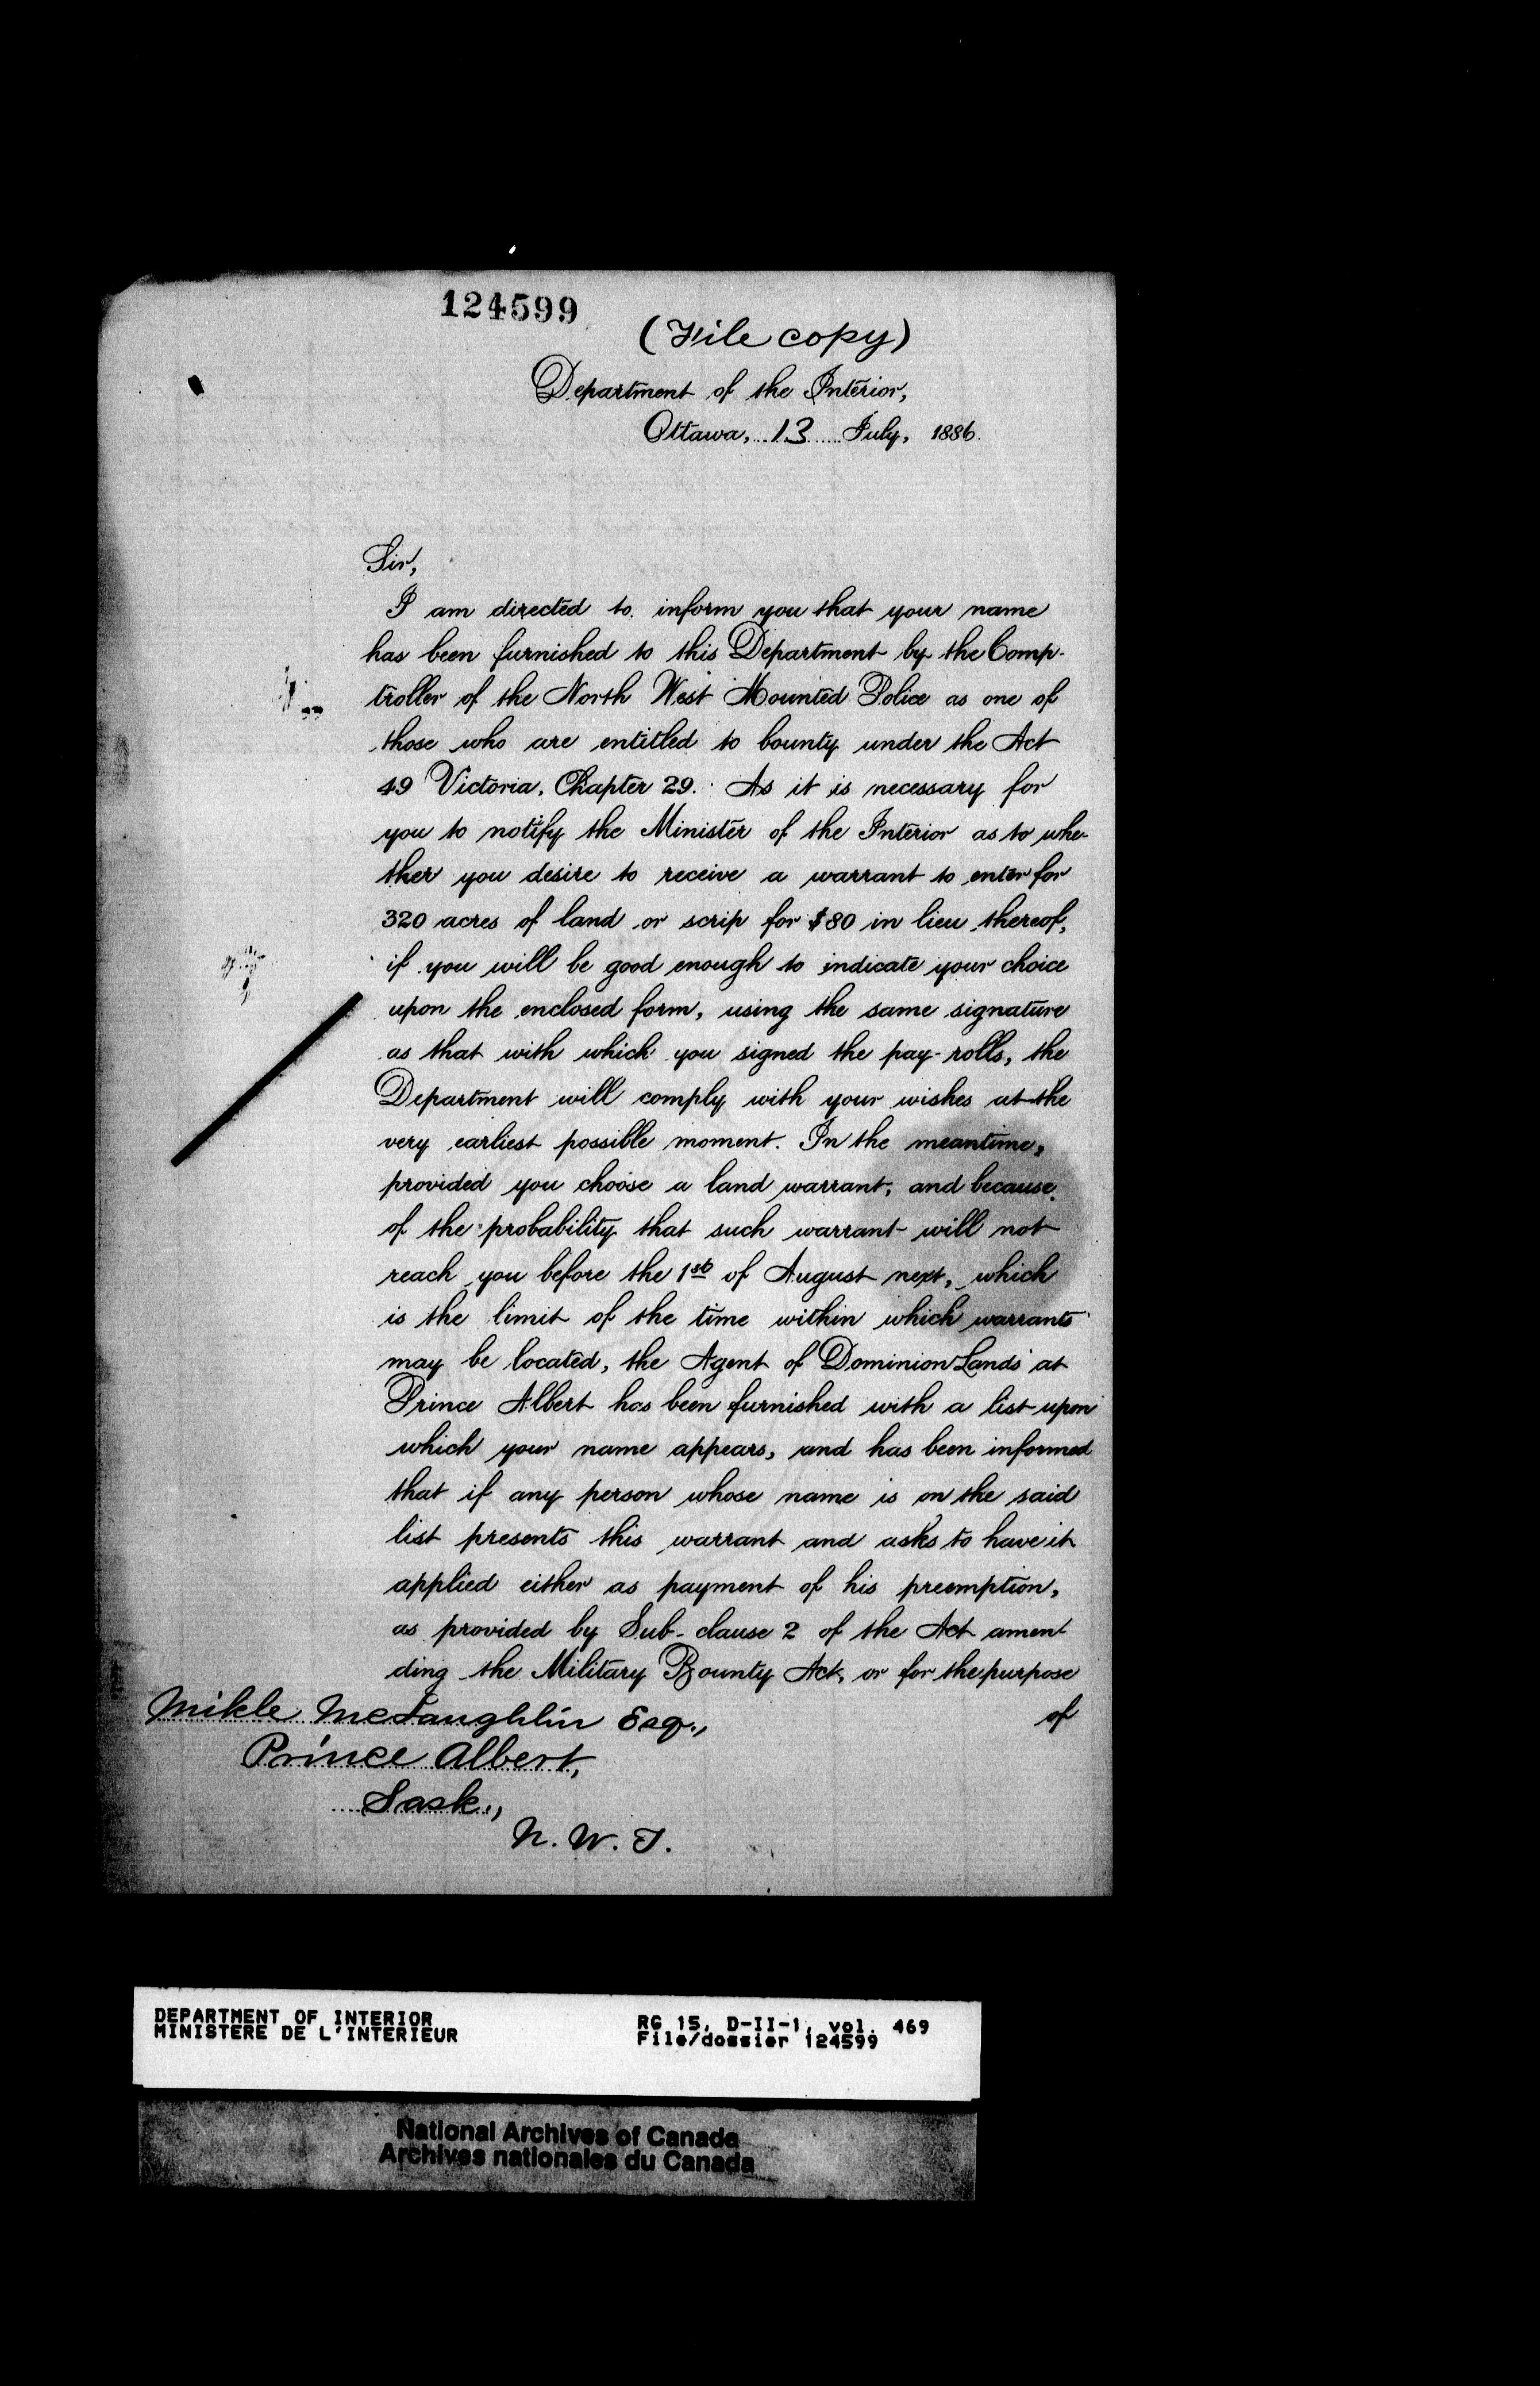 124599
(File copy)
Department of the Interior,
Ottawa, 13 July, 1886.
Sir,
I am directed to inform you that your name
has been furnished to this Department by the Comp-
troller of the North West Mounted Police as one of
those who are entitled to bounty under the Act
49 Victoria, Chapter 29. As it is necessary for
you to notify the Minister of the Interior as to whe-
ther you desire to receive a warrant to enter for
320 acres of land or scrip for $80 in lieu thereof,
if you will be good enough to indicate your choice
upon the enclosed form, using the same signature
as that with which you signed the pay-rolls, the
Department will comply with your wishes at the
very earliest possible moment. In the meantime,
provided you choose a land warrant, and because
of the probability that such warrant will not
reach you before the 1st of August next, which
is the limit of the time within which warrants
may be located, the Agent of Dominion Lands at
Prince Albert has been furnished with a list upon
which your name appears, and has been informed
that if any person whose name is on the said
list presents this warrant and asks to have it
applied either as payment of his preemption,
as provided by Sub-clause 2 of the Act amen
ding the Military Bounty Act, or for the purpose
of
Mikle McLaughlin Esq.,
Prince Albert,
Sask.,
N. W. T.
DEPARTMENT OF INTERIOR
MINISTERE DE L'INTERIEUR
RG 15, D-II-1, vol. 469
File/dossier 124599
National Archives of Canada
Archives nationales du Canada